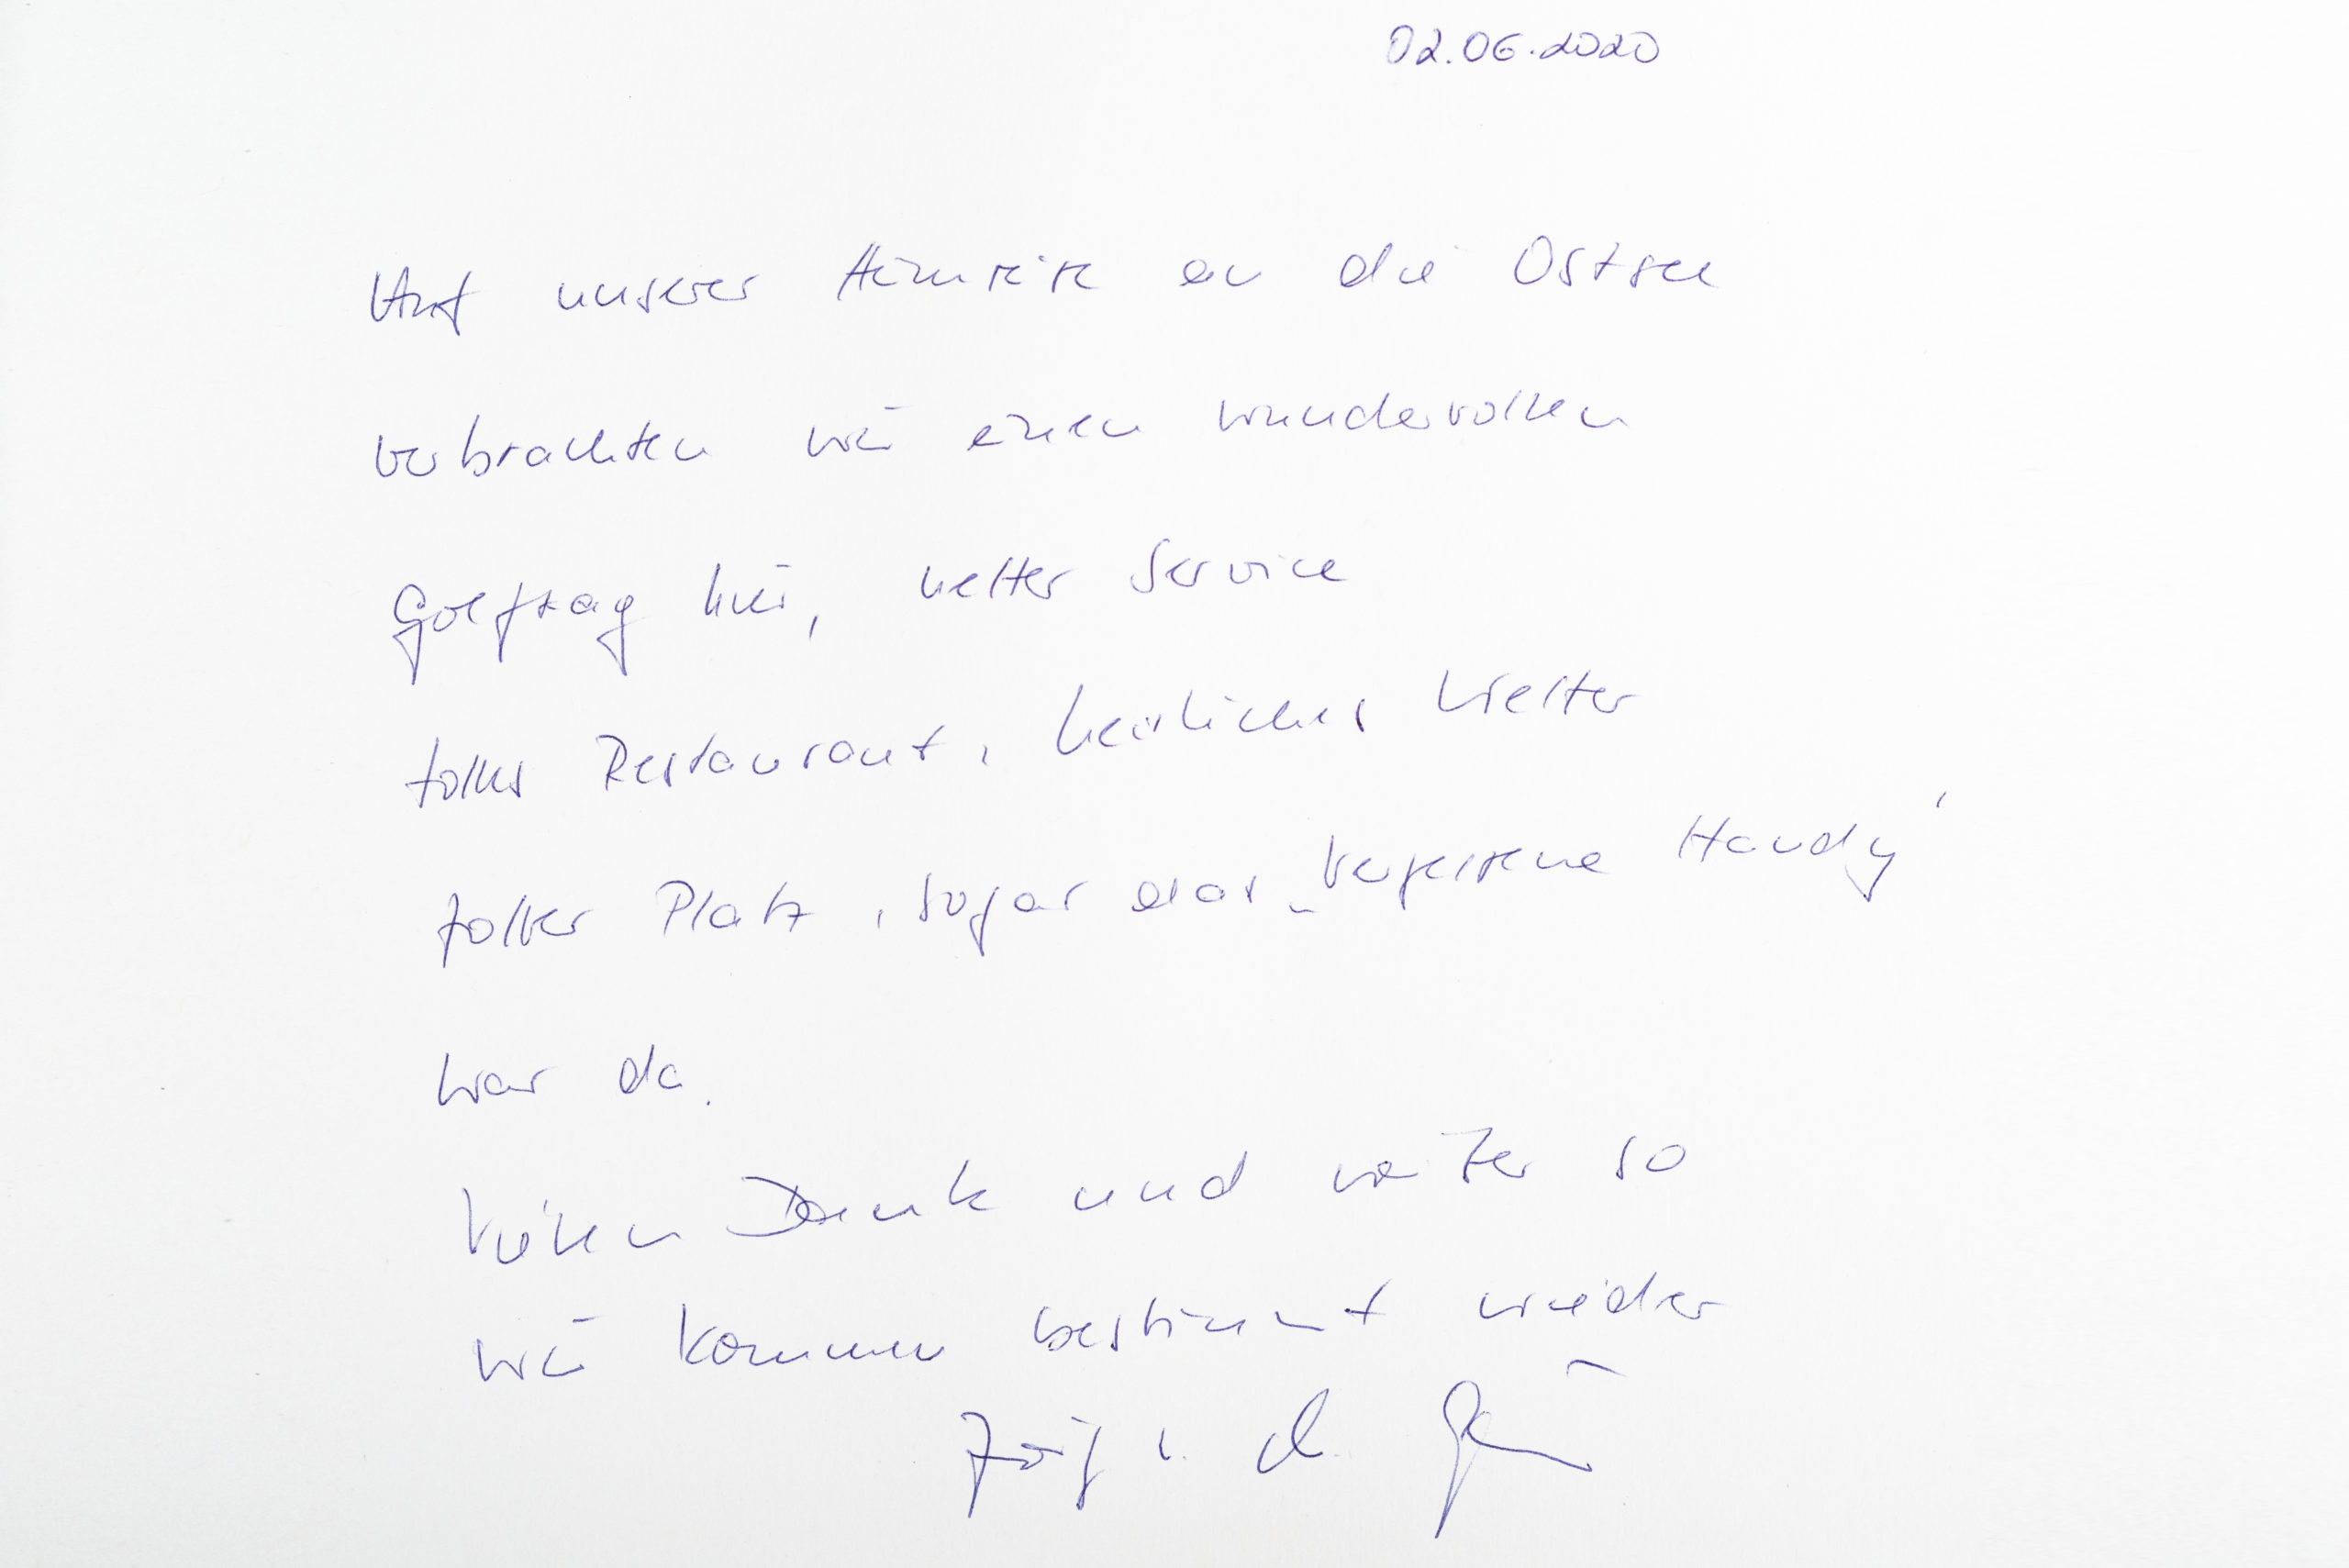 02.06.2020
Auf unserer Heimreise an die Ostsee
verbrachten wir einen wundervollen
Golftag hier, netter Service
tolles Restaurant, herrliches Wetter
toller Platz, sogar das „vergessene Handy"
war da.
Vielen Dank und weiter so
wir kommen bestimmt wieder
Jörg u.